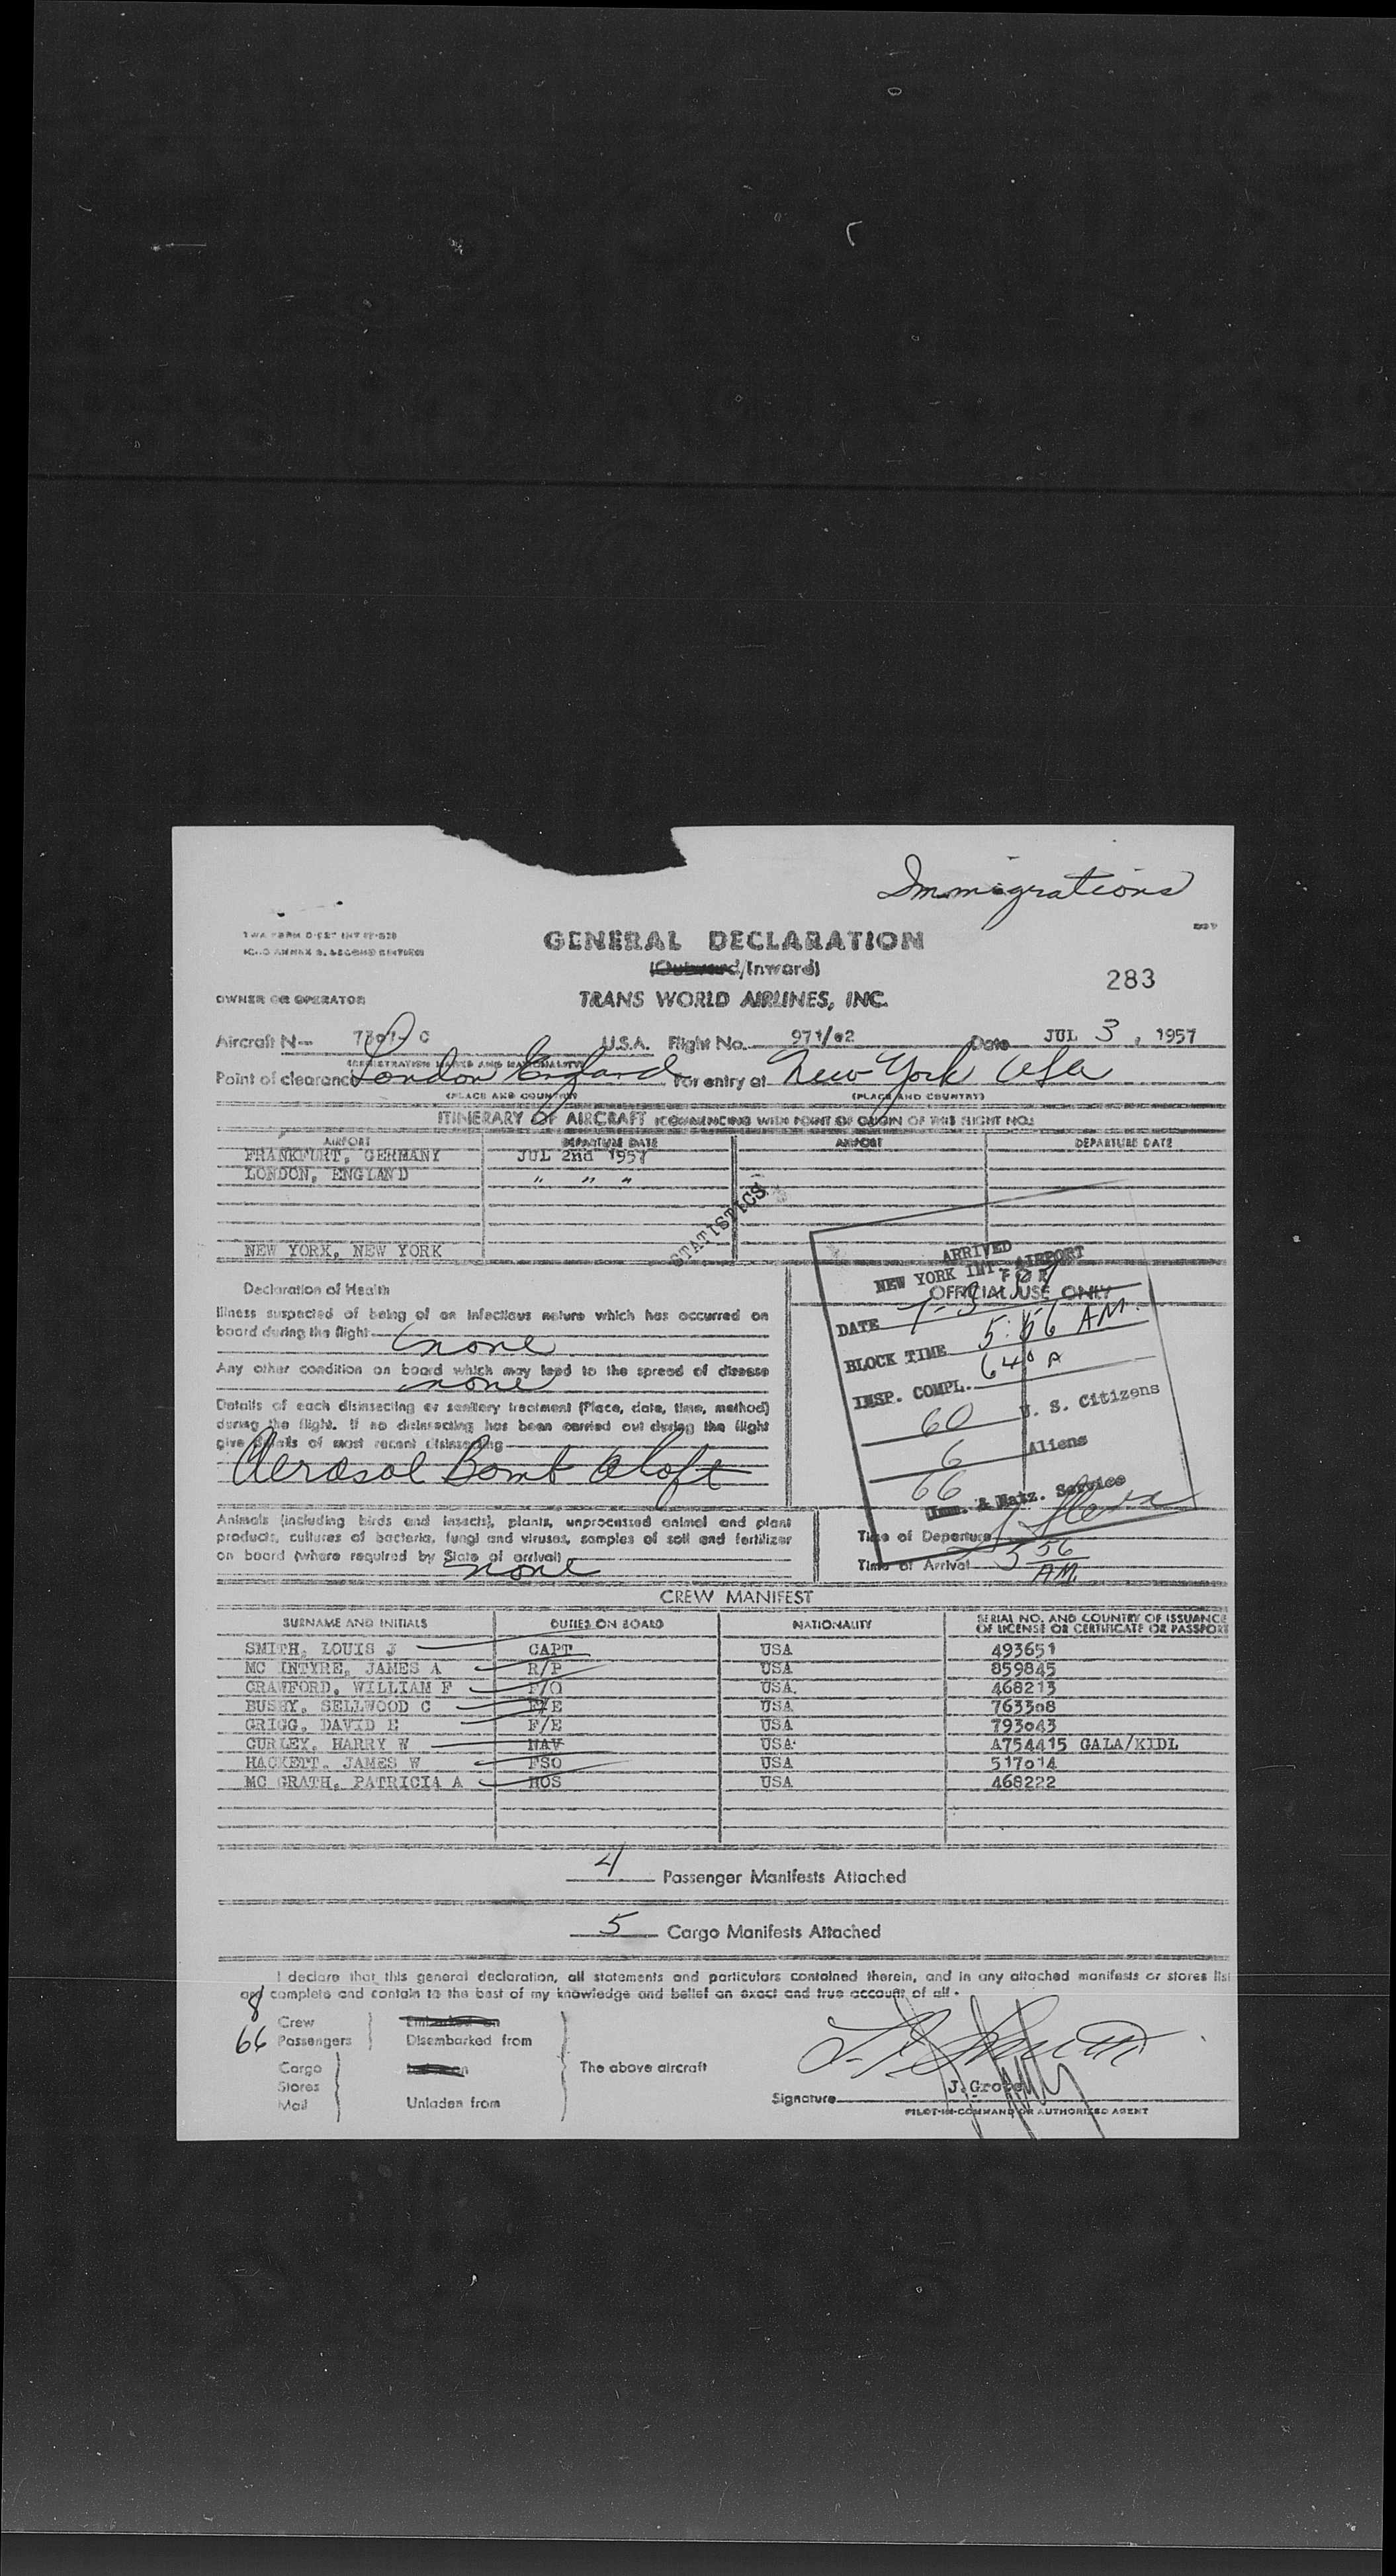 Immigrations
GENERAL DECLARATION
(Outward/Inward)
283
OWNER OR OPERATOR
TRANS WORLD AIRLINES, INC.
Aircraft N— C U.S.A. Flight No. 971/02 Date JUL 3, 1957
(REGISTRATION MARKS AND NATIONALITY)
Point of clearance London England For entry at New York USA
(PLACE AND COUNTRY) (PLACE AND COUNTRY)
ITINERARY OF AIRCRAFT (COMMENCING WITH POINT OF ORIGIN OF THIS FLIGHT NO.)
AIRPORT DEPARTURE DATE AIRPORT DEPARTURE DATE
FRANKFURT, GERMANY JUL 2nd 1957
LONDON, ENGLAND " " "
STATISTICS
NEW YORK, NEW YORK
Declaration of Health
Illness suspected of being of an infectious nature which has occurred on
board during the flight none
Any other condition on board which may lead to the spread of disease
none
Details of each disinsecting or sanitary treatment (Place, date, time, method)
during the flight. If no disinsecting has been carried out during the flight
give details of most recent disinsecting
Aerosol Bomb Aloft
FOR
OFFICIAL USE ONLY
ARRIVED
NEW YORK INT. AIRPORT
DATE
BLOCK TIME 5:56 AM.
INSP. COMPL. 640 A
60 U. S. Citizens
6 Aliens
66
Imm. & Natz. Service
Animals (including birds and insects), plants, unprocessed animal and plant
products, cultures of bacteria, fungi and viruses, samples of soil and fertilizer
on board (where required by State of arrival)
none
Time of Departure
Time of Arrival 5 56 AM.
CREW MANIFEST
SURNAME AND INITIALS DUTIES ON BOARD NATIONALITY SERIAL NO. AND COUNTRY OF ISSUANCE
OF LICENSE OR CERTIFICATE OR PASSPORT
SMITH, LOUIS J CAPT USA 493651
MC INTYRE, JAMES A R/P USA 859845
CRAWFORD, WILLIAM F F/O USA. 468213
BUSBY, SELLWOOD C F/E USA 763308
GRIGG, DAVID E F/E USA 793043
CURLEY, HARRY W NAV USA A754415 GALA/KIDL
HACKETT, JAMES W FSO USA 517014
MC GRATH, PATRICIA A HOS USA 468222
4 Passenger Manifests Attached
5 Cargo Manifests Attached
I declare that this general declaration, all statements and particulars contained therein, and in any attached manifests or stores list
are complete and contain to the best of my knowledge and belief an exact and true account of all -
8 Crew
66 Passengers Disembarked from
Cargo The above aircraft
Stores
Mail Unladen from
Signature
PILOT-IN-COMMAND OR AUTHORIZED AGENT